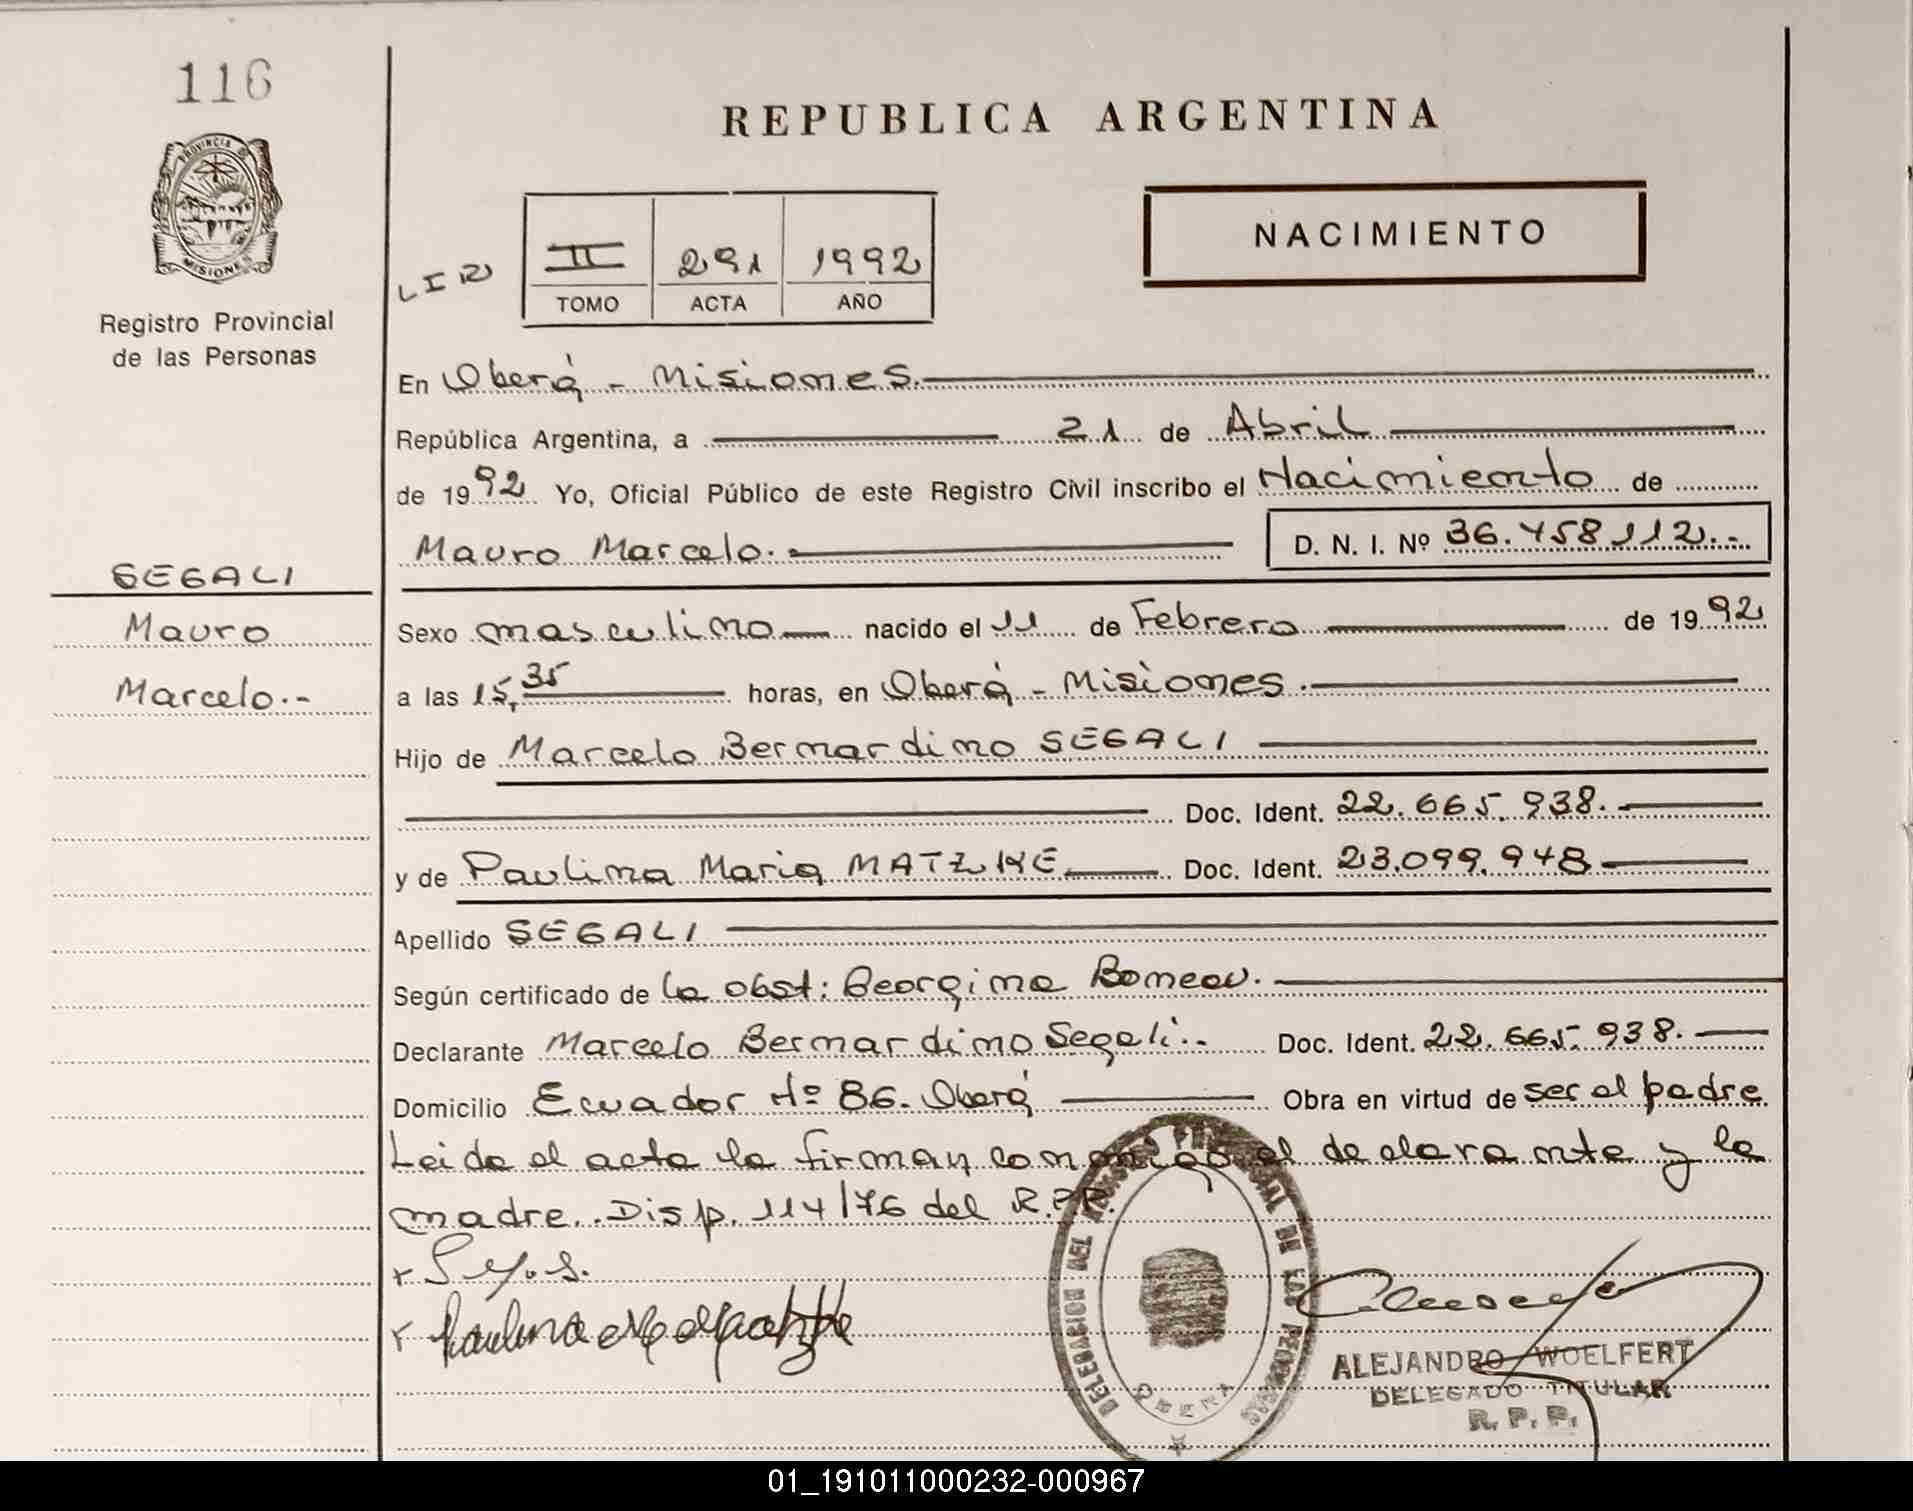 116
REPUBLICA ARGENTINA
PROVINCIA DE
MISIONES
Registro Provincial
de las Personas
NACIMIENTO
II 291 1992
TOMO ACTA AÑO
En Oberá - Misiones.
República Argentina, a 21 de Abril
de 1992 Yo, Oficial Público de este Registro Civil inscribo el Nacimiento de
Mauro Marcelo. D. N. I. Nº 36.458.112.-
SEGALI
Mauro
Marcelo.-
Sexo masculino nacido el 11 de Febrero de 1992
a las 15,35 horas, en Oberá - Misiones.
Hijo de Marcelo Bernardino SEGALI
Doc. Ident. 22.665.938.
y de Paulina Maria MATZKE Doc. Ident. 23.099.948
Apellido SEGALI
Según certificado de la obst: Georgina Boneau.
Declarante Marcelo Bernardino Segali.- Doc. Ident. 22.665.938.
Domicilio Ecuador Nº 86. Oberá Obra en virtud de ser el padre
Leida el acta la firman conmigo el declarante y la
madre. Disp. 114/76 del R.P.P.
DELEGACION DEL REGISTRO PROVINCIAL DE LAS PERSONAS
OBERA
ALEJANDRO WOELFERT
DELEGADO TITULAR
R. P. P.
01_191011000232-000967